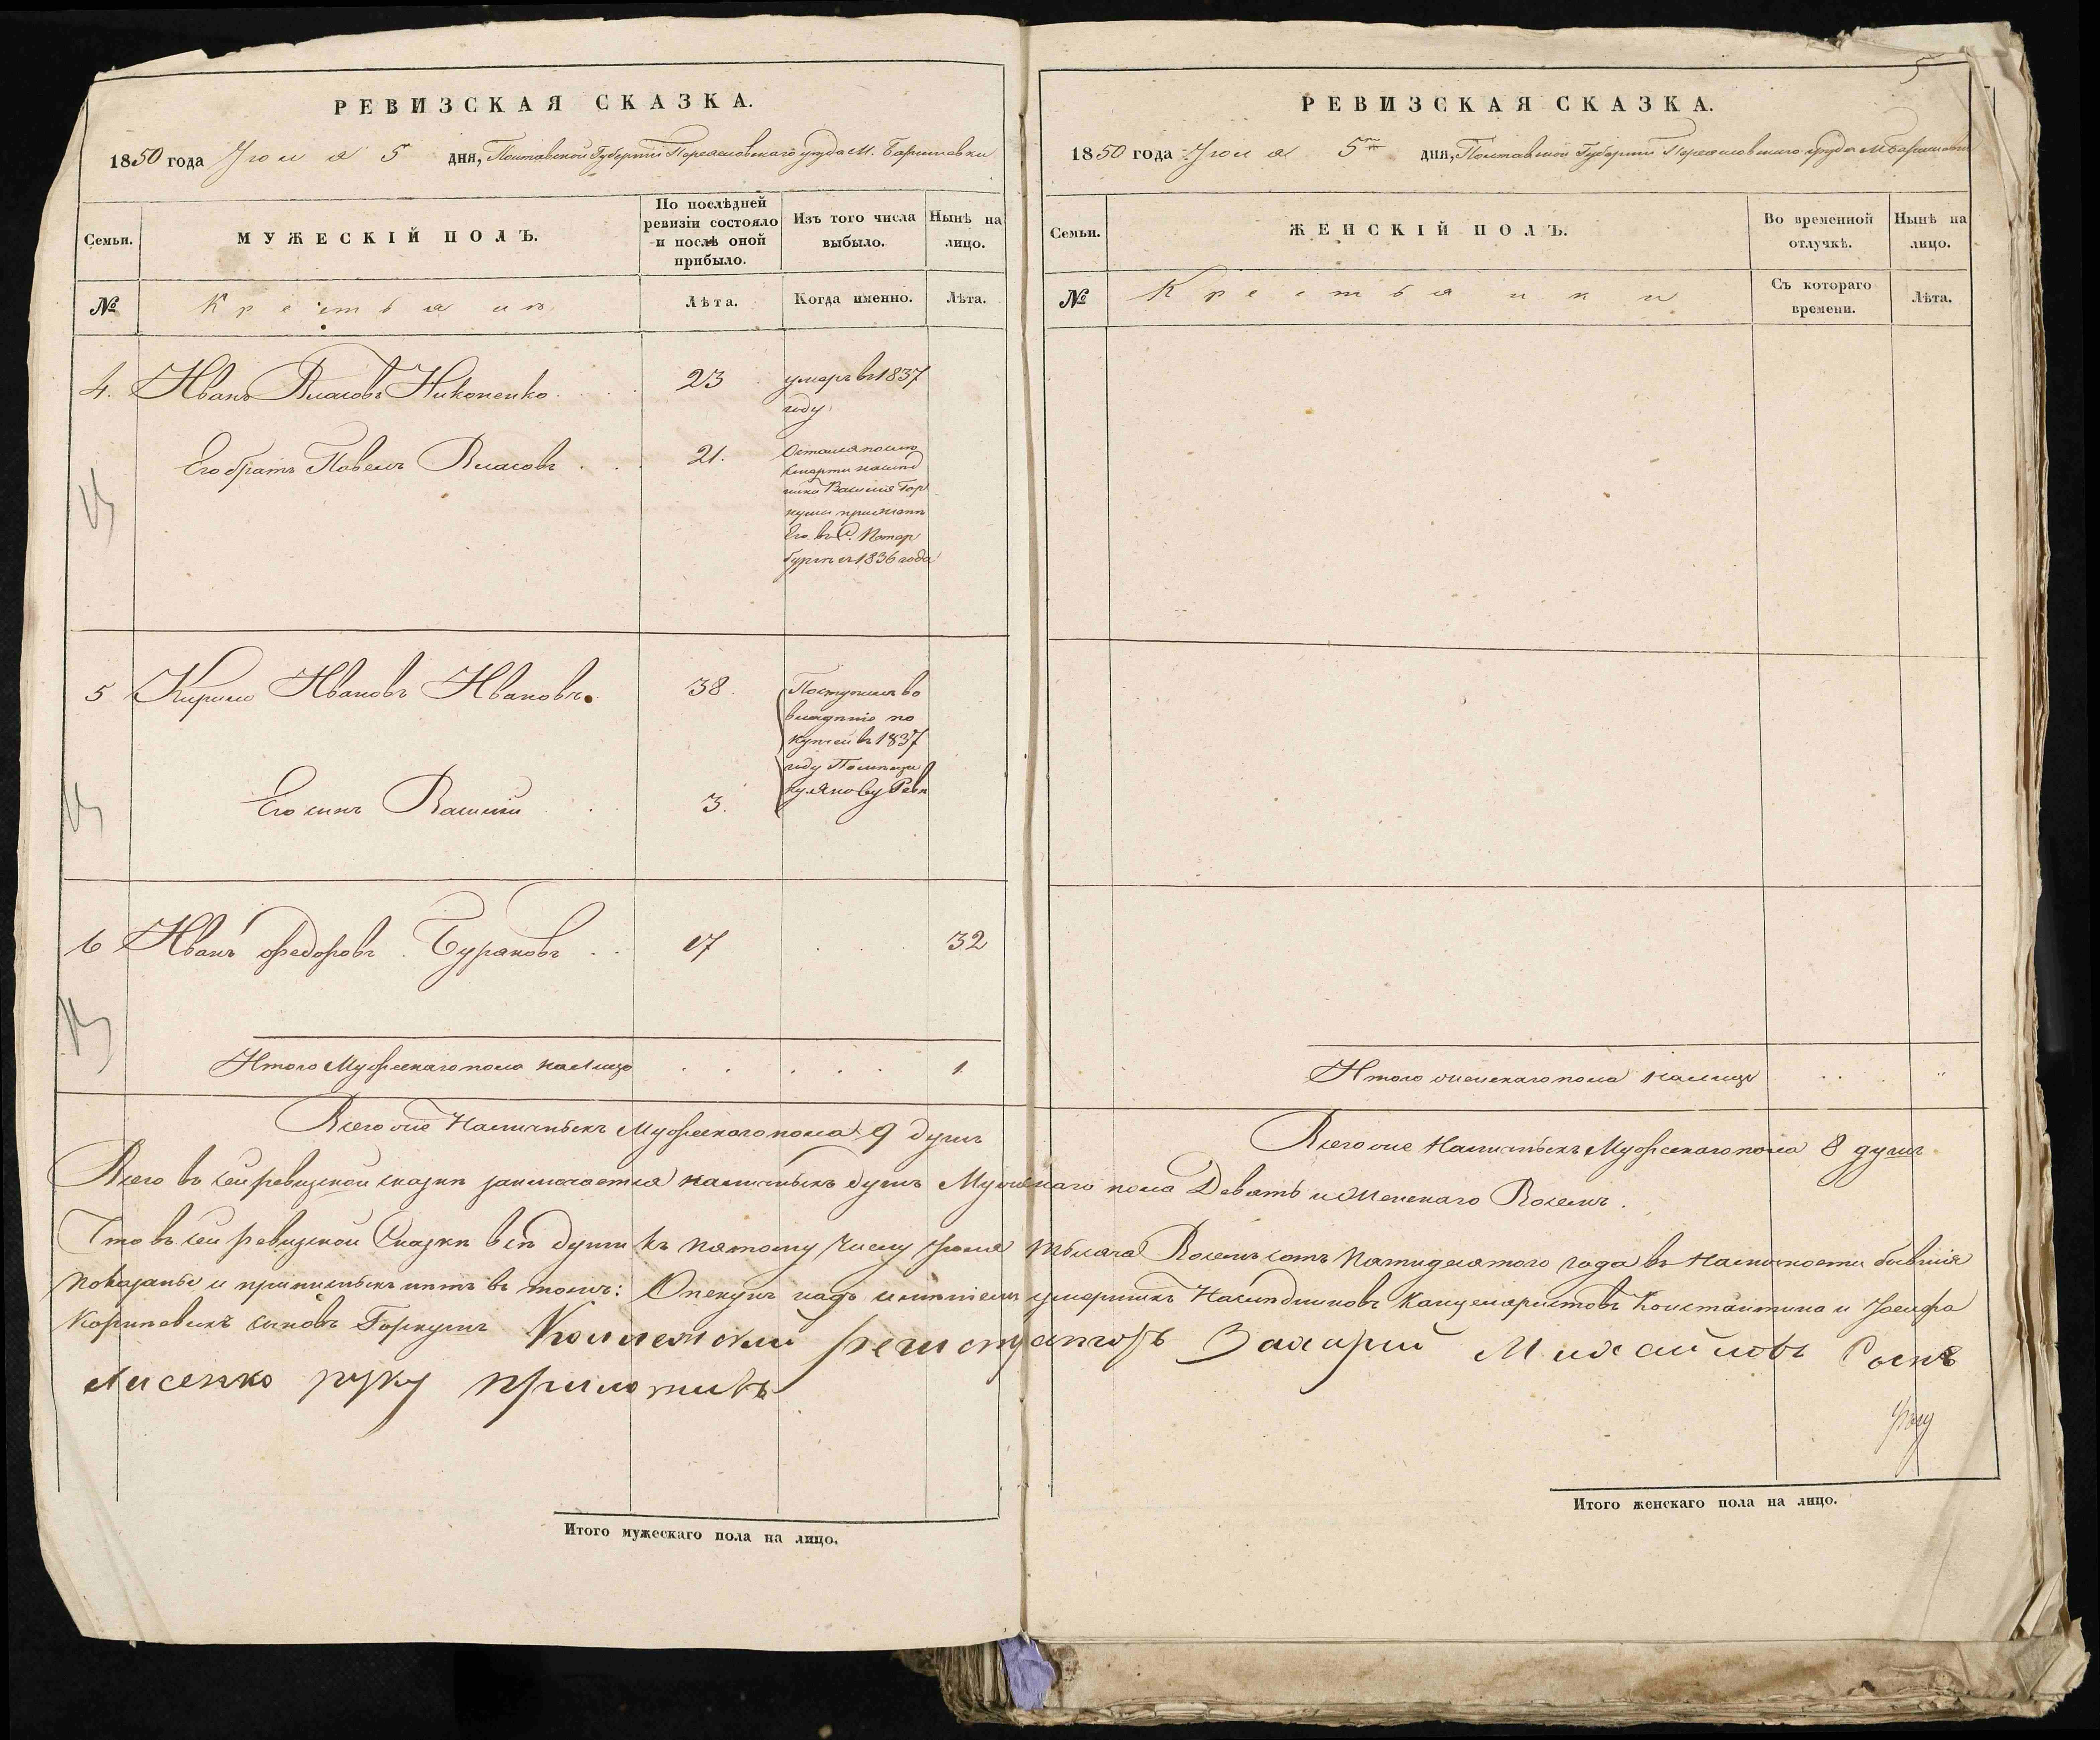 РЕВИЗСКАЯ СКАЗКА.
1850 года Июля 5 дня, Полтавской Губернии Переясловскаго уезда М. Баришовки
Семьи.
МУЖЕСКІЙ ПОЛЪ.
По послѣдней
ревизіи состояло
и послѣ оной
прибыло.
Изъ того числа
выбыло.
Нынѣ на
лицо.
№
Крестьянъ
Лѣта.
Когда именно.
Лѣта.
4. Иванъ Власовъ Никоненко
23
умеръ въ 1837
году
Его братъ Павелъ Власовъ
21.
Остался послѣ
смерти наслѣд
ника Василія Гор
куши
Его въ С. Петер
бургѣ съ 1836 года
5 Кирило Ивановъ Ивановъ.
38.
Поступилъ во
владѣніе по
купчей въ 1837
году Помѣщи
ку
Его сынъ Василій
3.
6 Иванъ Федоровъ Бураковъ
17
32
Итого Мужескаго пола на лицо
1
Всего же Наличныхъ Мужескаго пола 9 душъ
РЕВИЗСКАЯ СКАЗКА.
5
1850 года Июля 5го дня, Полтавской Губернии Переясловскаго уезда М Баришовки
Семьи.
ЖЕНСКІЙ ПОЛЪ.
Во временной
отлучкѣ.
Нынѣ на
лицо.
№
Крестьянки
Съ котораго
времени.
Лѣта.
Итого женскаго пола на лице
"
Всего же Наличныхъ Мужескаго пола 8 душъ
Всего въ сей ревизской сказкѣ заключается наличныхъ душъ Мужескаго пола Девять и Женскаго Восемь.
Что въ сей ревизской Сказкѣ всѣ души къ пятому числу Июля мѣсяца Восемьсотъ пятидесятого года въ наличности бывшія
показаны и прописныхъ нѣтъ въ томъ: Опекунъ надъ имѣніемъ умершихъ Наслѣдниковъ Канцеляристовъ Константина и
сыновъ Горкушъ Коллежский регистраторъ Захарий Михайловъ Сынъ
Лисенко руку приложивъ
Итого мужескаго пола на лицо.
Итого женскаго пола на лицо.